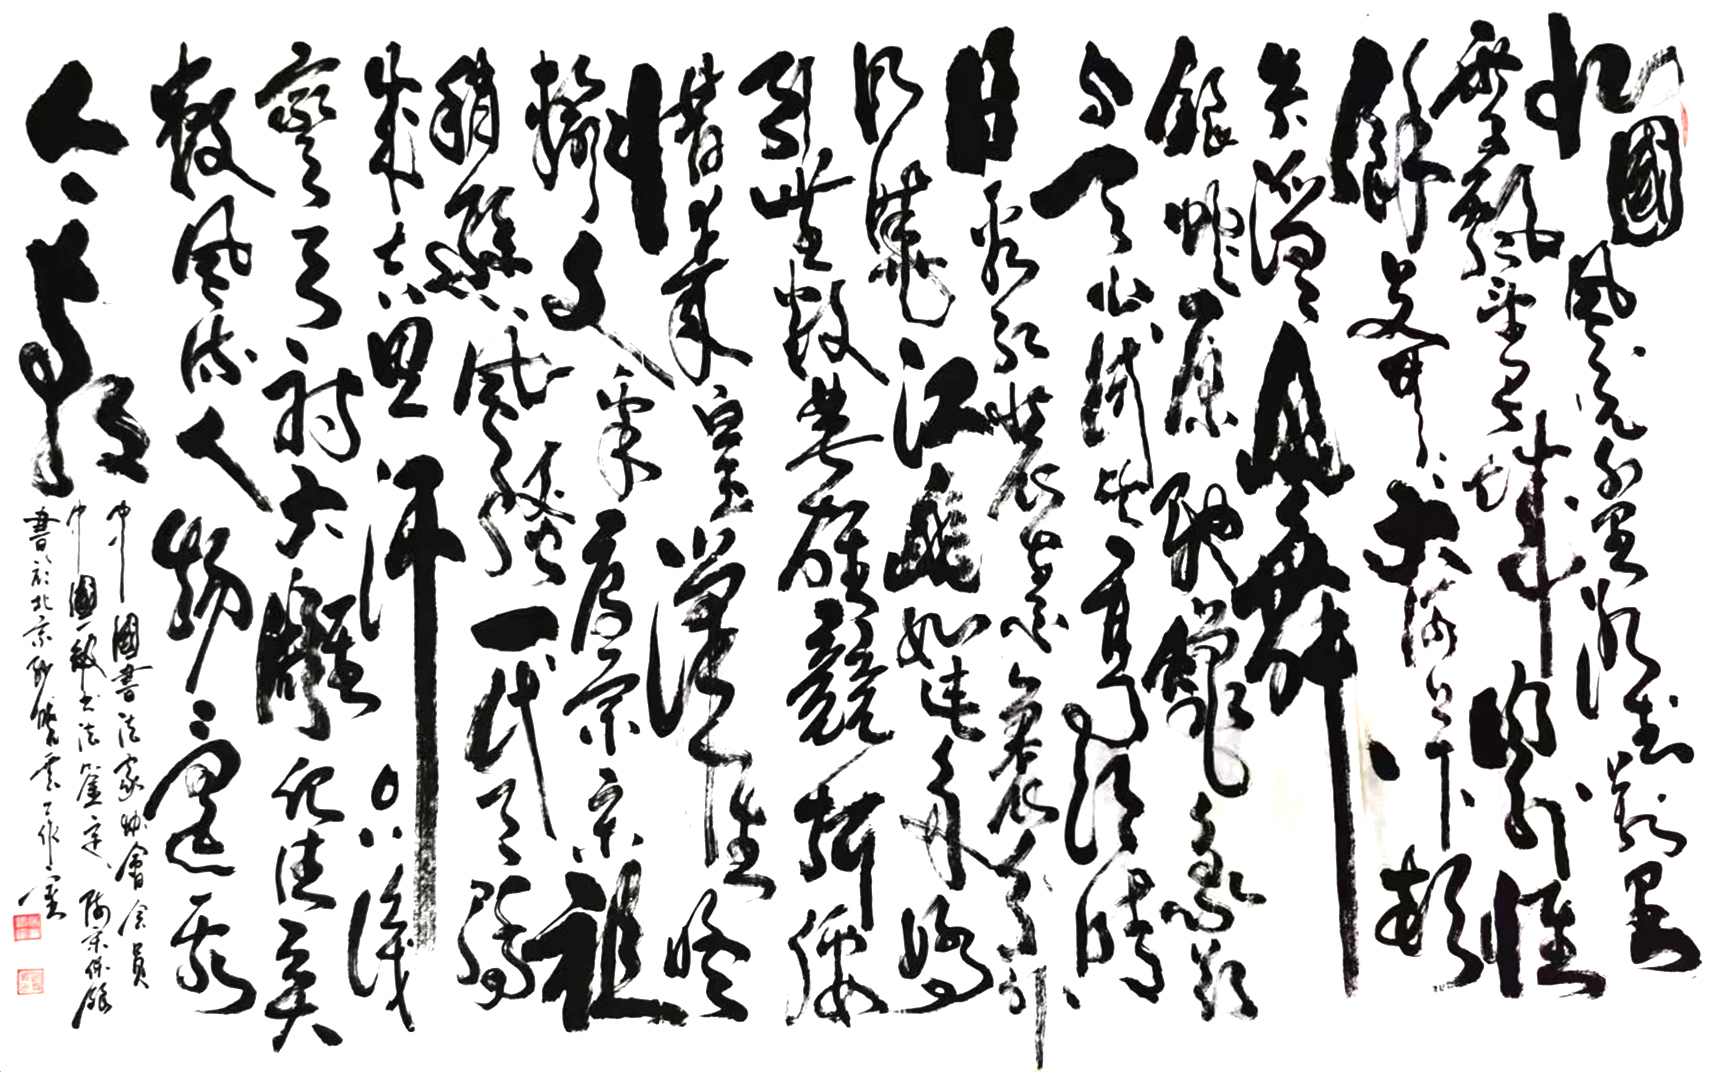 北國風光千里冰封萬里
雪飄望長城內外惟
餘莽莽大河上下頓
失滔滔山舞
銀蛇原馳蠟象欲
与天公試比高須晴
日看紅裝素裹分外
妖嬈江山如此多嬌
引無數英雄競折腰
惜秦皇漢武略
輸文采唐宗宋祖
稍遜風騷一代天驕
成吉思汗只識
彎弓射大雕俱往矣
數風流人物還看
今朝
中國書法家協會會員
中國一級書法鑒定
書於北京 雲工作室